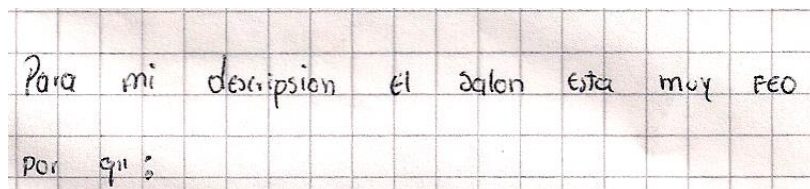 Para mi descripsion El salon Esta muy FEO
por q":